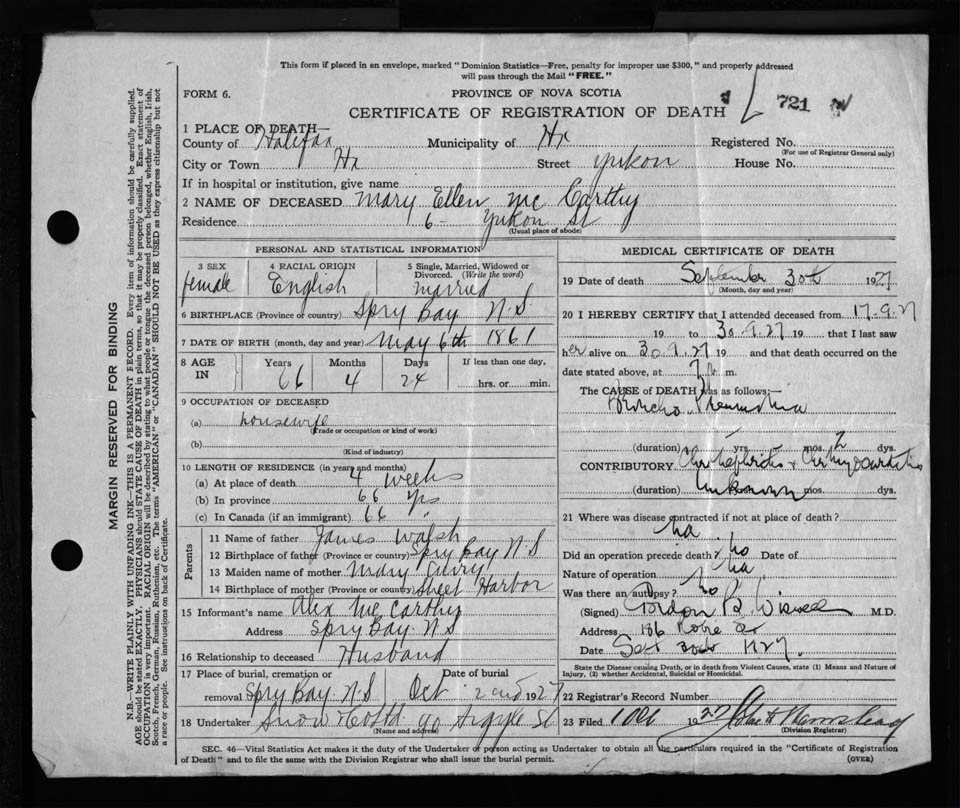 This form if placed in an envelope, marked "Dominion Statistics—Free, penalty for improper use $300," and properly addressed
will pass through the Mail "FREE."
FORM 6.
PROVINCE OF NOVA SCOTIA
721
CERTIFICATE OF REGISTRATION OF DEATH
1 PLACE OF DEATH—
County of Halifax Municipality of Hx Registered No.
(For use of Registrar General only)
City or Town Hx Street Yukon House No.
If in hospital or institution, give name
2 NAME OF DECEASED Mary Ellen McCarthy
Residence 6- Yukon St
(Usual place of abode)
PERSONAL AND STATISTICAL INFORMATION
3 SEX 4 RACIAL ORIGIN 5 Single, Married, Widowed or
Divorced. (Write the word)
female English married
6 BIRTHPLACE (Province or country) Spry Bay N.S.
7 DATE OF BIRTH (month, day and year) May 6th 1861
8 AGE IN Years Months Days If less than one day,
66 4 24 hrs. or min.
9 OCCUPATION OF DECEASED
(a) housewife
(Trade or occupation or kind of work)
(b)
(Kind of industry)
10 LENGTH OF RESIDENCE (in years and months)
(a) At place of death 4 weeks
(b) In province 66 yrs
(c) In Canada (if an immigrant) 66 "
Parents
11 Name of father James Walsh
12 Birthplace of father (Province or country) Spry Bay N.S
13 Maiden name of mother Mary
14 Birthplace of mother (Province or country) Sheet Harbor
15 Informant's name Alex McCarthy
Address Spry Bay N.S
16 Relationship to deceased Husband
17 Place of burial, cremation or Date of burial
removal Spry Bay N.S Oct 2nd 1927
18 Undertaker Snow & Co Ltd 90 Argyle St
(Name and address)
MEDICAL CERTIFICATE OF DEATH
19 Date of death September 30th 1927
(Month, day and year)
20 I HEREBY CERTIFY that I attended deceased from 17-9-27
19 to 30.9.27 19 that I last saw
her alive on 30.9.27 19 and that death occurred on the
date stated above, at 7 p m.
The CAUSE of DEATH was as follows:—
Broncho Pneumonia
(duration) yrs mos. 2 dys.
CONTRIBUTORY Chr. Nephritis +
(duration) Unknown mos. dys.
21 Where was disease contracted if not at place of death?
na
Did an operation precede death? no Date of
Nature of operation na
Was there an autopsy? no
(Signed) Gordon B. Wiswell M.D.
Address 186 Robie St
Date Sept 30th 1927.
State the Disease causing Death, or in death from Violent Causes, state (1) Means and Nature of
Injury, (2) whether Accidental, Suicidal or Homicidal.
22 Registrar's Record Number
23 Filed 1 Oct 1927
(Division Registrar)
SEC. 46—Vital Statistics Act makes it the duty of the Undertaker or person acting as Undertaker to obtain all the particulars required in the "Certificate of Registration
of Death" and to file the same with the Division Registrar who shall issue the burial permit.
(OVER)
MARGIN RESERVED FOR BINDING
N.B.—WRITE PLAINLY WITH UNFADING INK—THIS IS A PERMANENT RECORD. Every item of information should be carefully supplied.
AGE should be stated EXACTLY. PHYSICIANS should STATE CAUSE OF DEATH in plain terms, so that it may be properly classified. Exact statement of
OCCUPATION is very important. RACIAL ORIGIN will be described by stating to what people or tongue the deceased person belonged, whether English, Irish,
Scotch, French, German, Russian, Ruthenian, etc. The terms "AMERICAN" or "CANADIAN" SHOULD NOT BE USED as they express citizenship but not
a race or people. See instructions on back of Certificate.